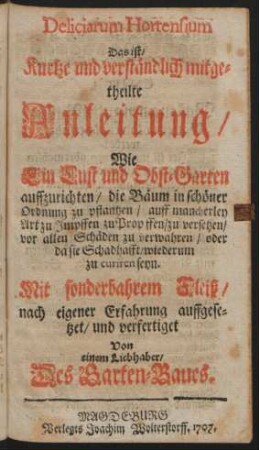 Deliciarum Hortensium
Das ist/
Kurtze und verständlich mitge-
theilte
Anleitung/
Wie
Ein Lust und Obst-Garten
auffzurichten/ die Bäum in schöner
Ordnung zu pflantzen/ auff mancherley
Art zu Impffen zu Propffen/ zu versetzen/
vor allen Schäden zu verwahren/ oder
da sie Schadhafft/ wiederum
zu curiren seyn.
Mit sonderbahrem Fleiß/
nach eigener Erfahrung auffgese-
tzet/ und verfertiget
Von
einem Liebhaber/
Des Garten-Baues.
MAGDEBURG
Verlegts Joachim Wolterstorff, 1707.